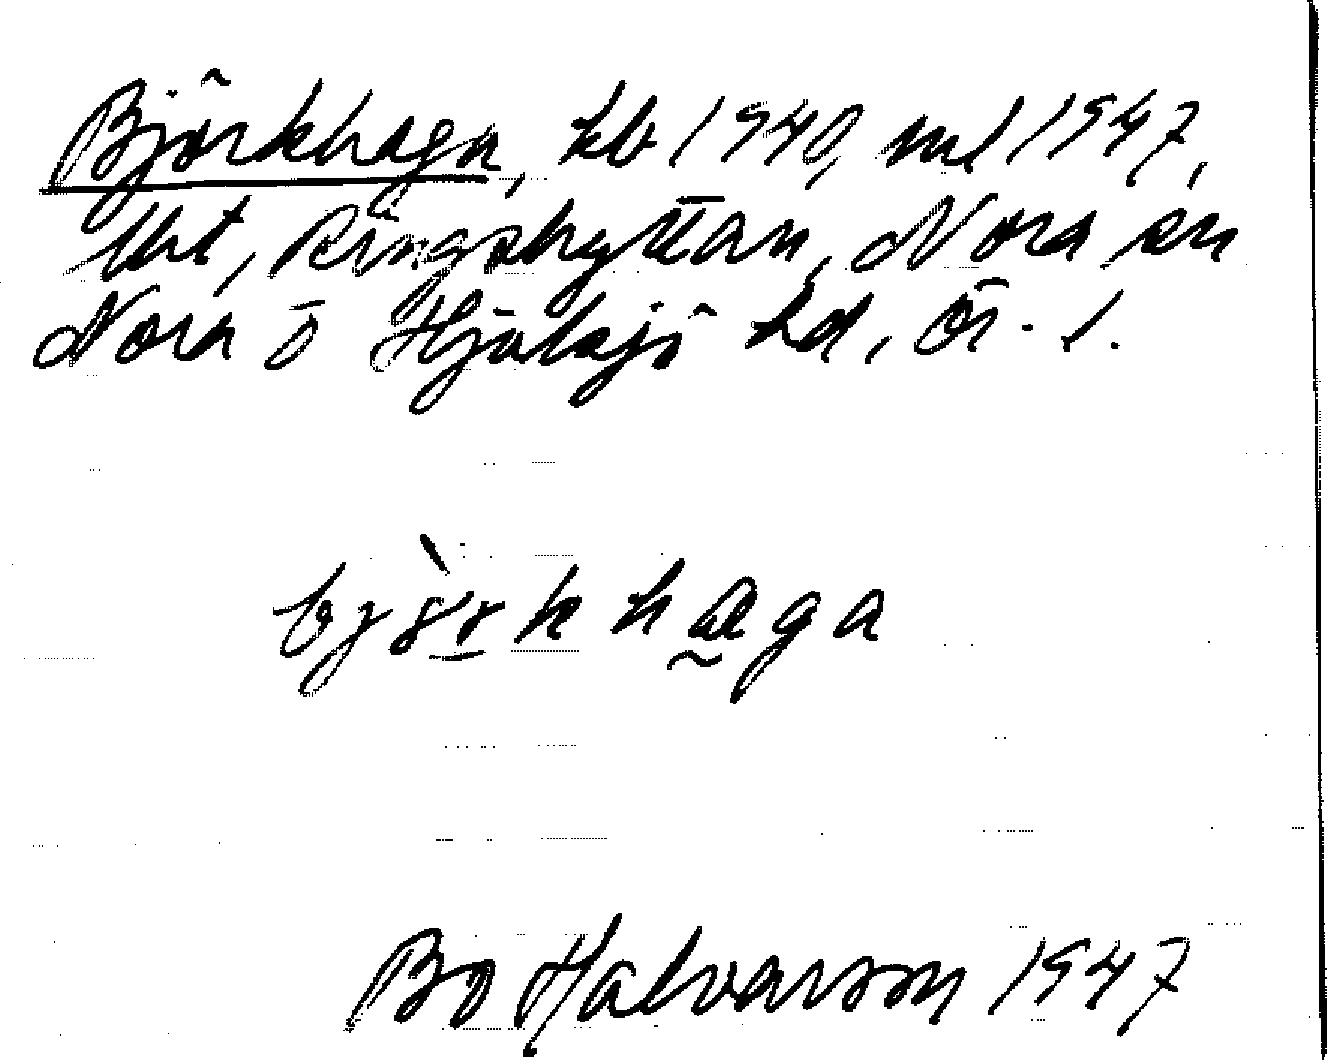 Björkhaga, kb 1940, ml 1947,
lht, Ringshyttan, Nora sn
Nora o Hjulsjö hd, Ör. l.
Bo Halvarson 1947